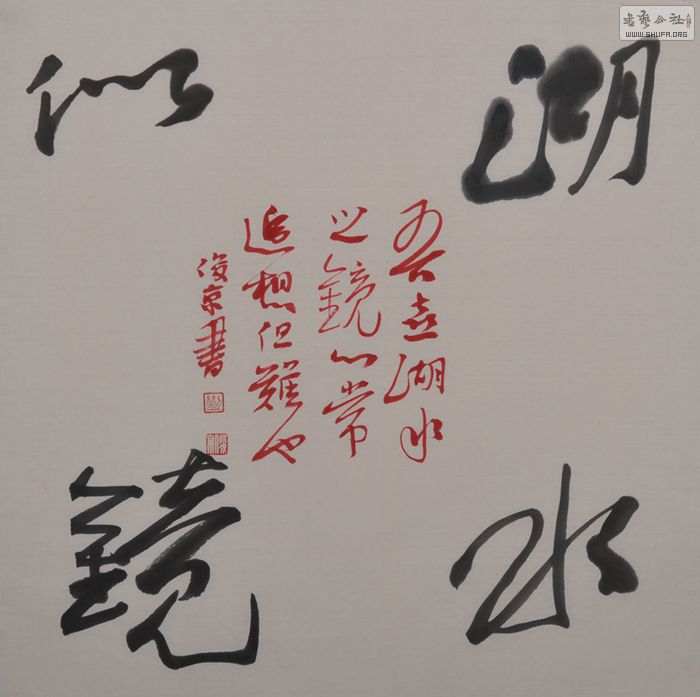 湖水
似鏡
吾喜湖水
之鏡心常
追想但難也
俊京書
書藝公社
WWW.SHUFA.ORG